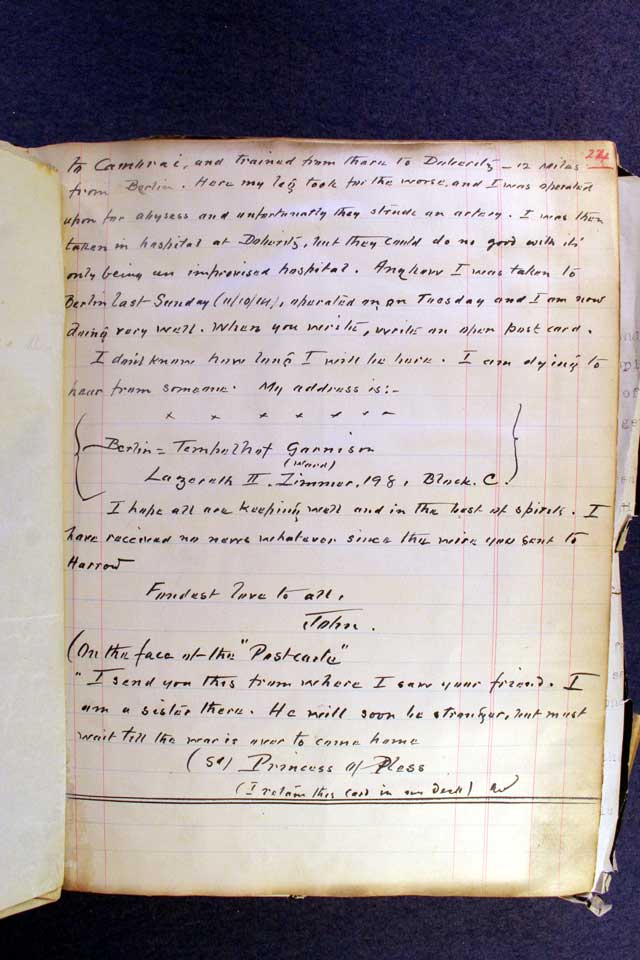 224
to Cambrai, and trained from there to Doberitz – 12 miles
from Berlin. Here my leg took for the worse, and I was operated
upon for abysess and unfortunatly they strude an artery. I was then
taken in hospital at Doberitz, but they could do no good with it
only being an improvised hospital. Anyhow I was taken to
Berlin last Sunday (11/10/14), operated on on Tuesday and I am now
doing very well. When you write, write an open post card.
I don't know how long I will be here. I am dying to
hear from someone. My address is:-
x x x x x x
Berlin = Tempelhof Garnison
(Ward)
Lazereth II. Zimmer. 198, Block. C.
I hope all are keeping well and in the best of spirits. I
have received no news whatever since the wire you sent to
Harrow
Fondest love to all,
John.
(On the face of the "Postcarte"
"I send you this from where I saw your friend. I
am a sister there. He will soon be stronger, but must
wait till the war is over to come home
(Sd) Princess of Pless
(I retain this card in my desk)